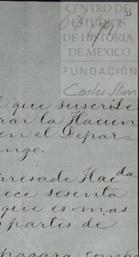 CENTRO DE
ESTUDIOS
DE HISTORIA
DE MEXICO
FUNDACIÓN
Carlos Slim
que suscribe
rar la Hacien
en el Depar-
ngo.
presade Hacda
ece sesenta
que es mas
partes de
pagara como